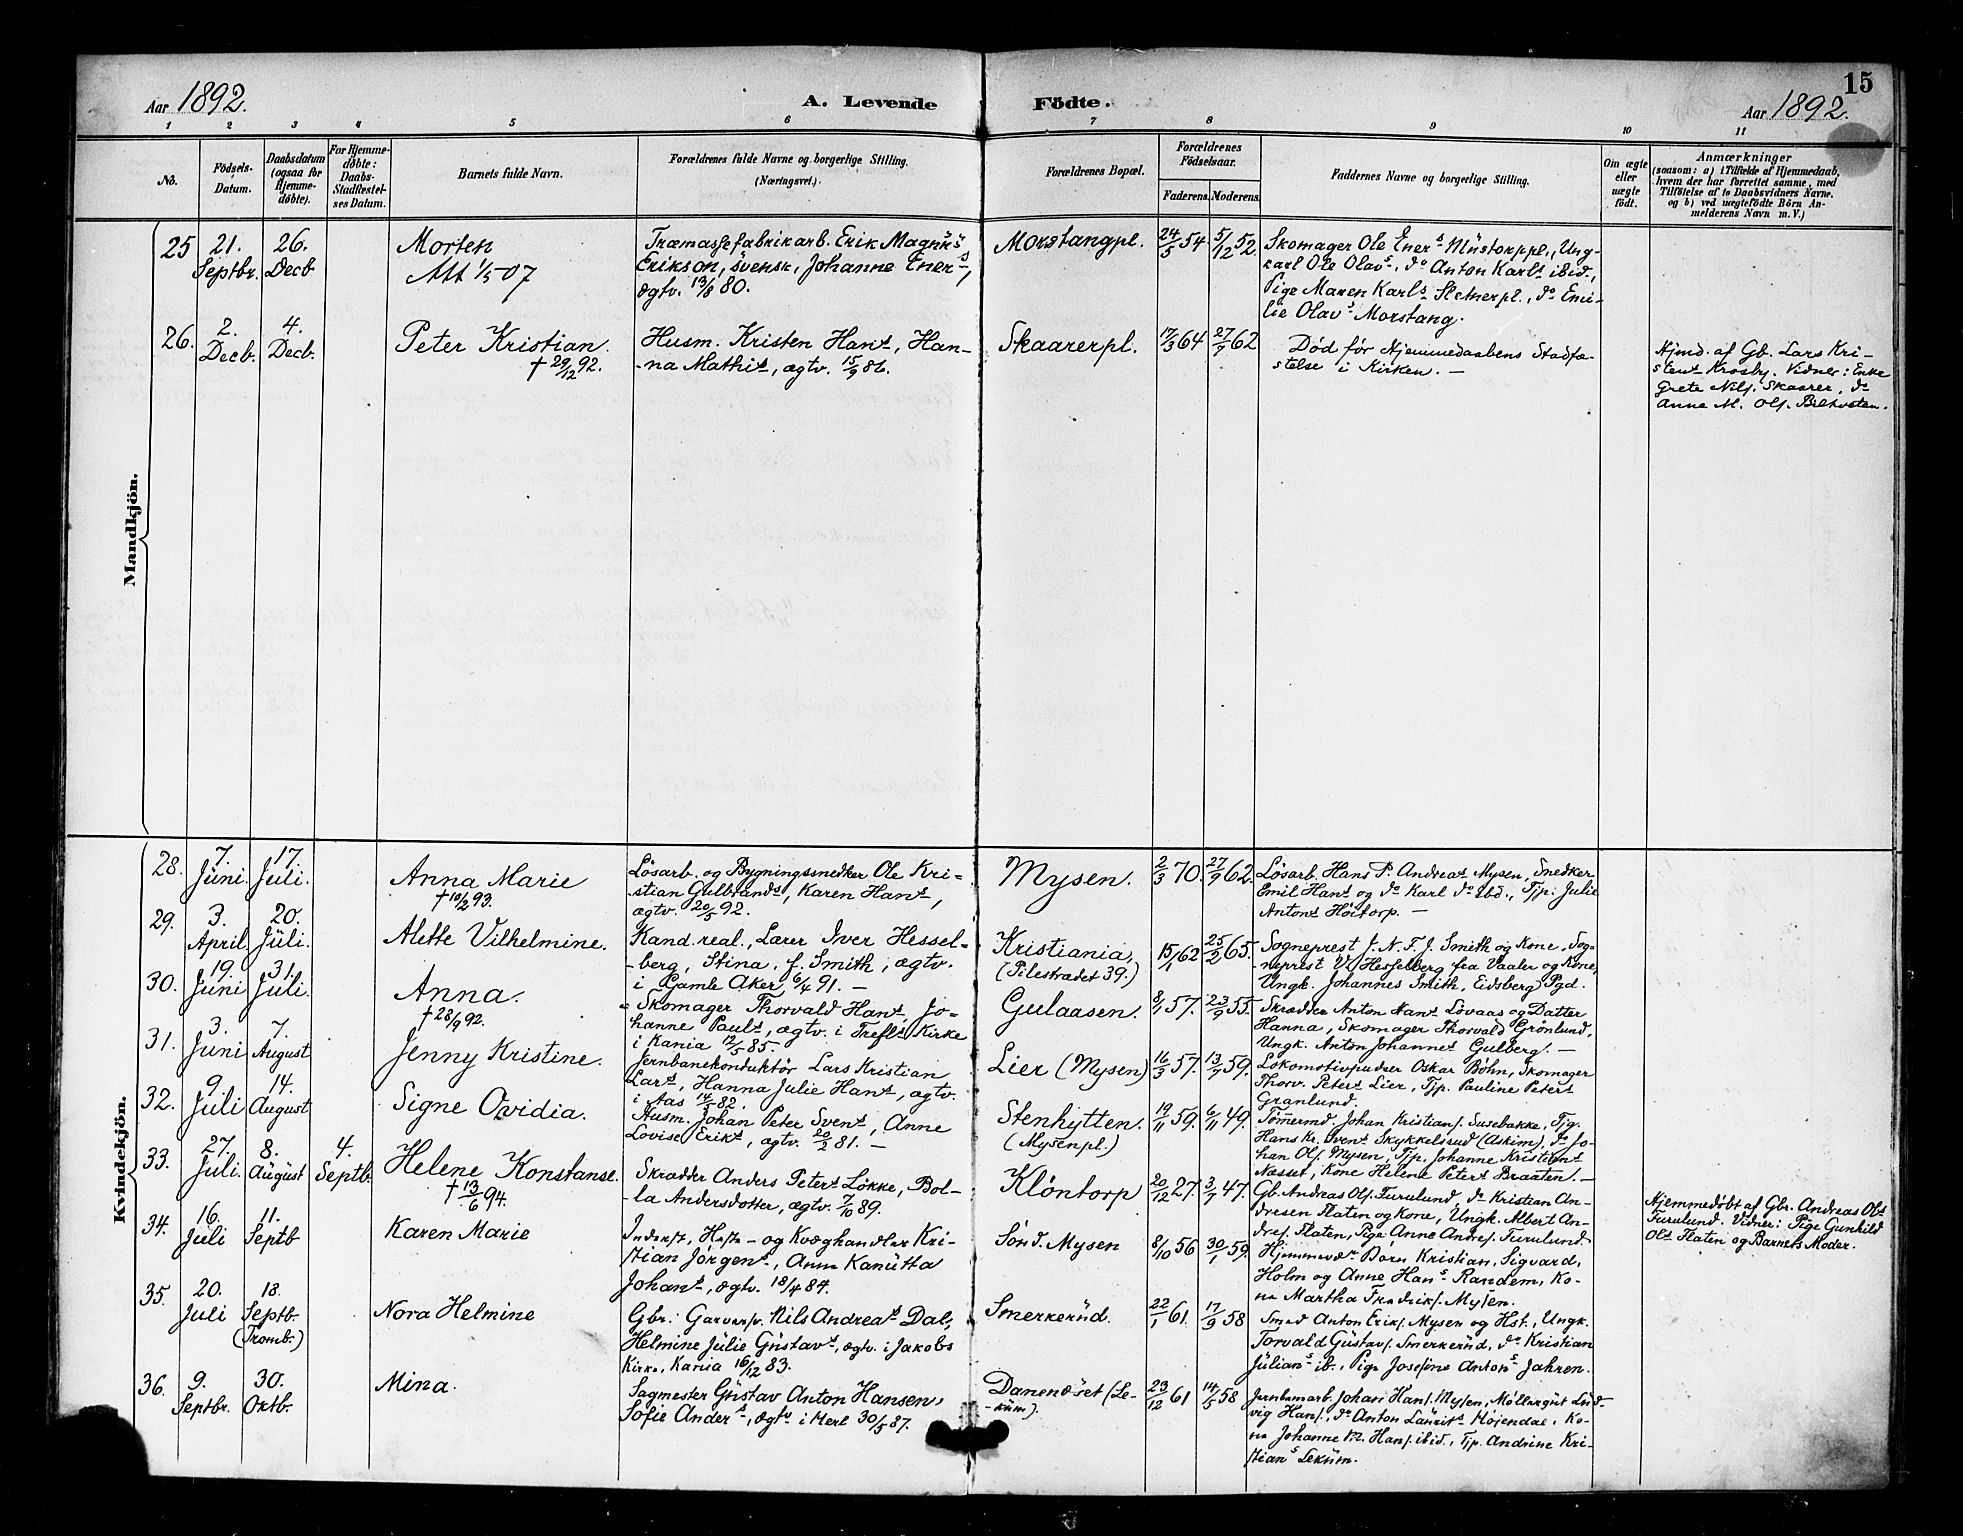 15
Aar 1892.
A. Levende
Födte.
Aar 1892.
1 2 3 4 5 6 7 8 9 10 11
No.
Födsels-
Datum.
Daabsdatum
(ogsaa for
Hjemme-
døbte).
For Hjemme-
døbte:
Daabs-
Stadfæstel-
ses Datum.
Barnets fulde Navn.
Forældrenes fulde Navne og borgerlige Stilling.
(Næringsvei.)
Forældrenes Bopæl.
Forældrenes
Födselsaar.
Faderens. Moderens.
Faddernes Navne og borgerlige Stilling.
Om ægte
eller
uægte
födt.
Anmærkninger
(saasom: a) i Tilfælde af Hjemmedaab,
hvem der har forrettet samme, med
Tilföielse af to Daabsvidners Navne.
og b) ved uægtefödte Börn An-
melderens Navn m.V.)
Mandkjön.
25
21.
Septbr.
26.
Decb.
Morten
Att 1/5 07
Træmassefabrikarb. Erik Magnus
Erikson, svensk, Johanne Eners,
ægtv. 13/8 80.
Morstangpl.
24/5 54
5/12 52.
Skomager Ole Eners Mustorppl., Ung-
karl Ole Olavs, do Anton Karls ibid.,
Pige Maren Karls Sletnerpl., do Emi-
lie Olavs Morstang.
26.
2.
Decb.
4.
Decb.
Peter Kristian.
† 29/12 92.
Husm. Kristen Hans, Han-
-na Mathis, ægtv. 15/9 86.
Skaarerpl.
17/3 64
27/7 62
Død før Hjemmedaabens Stadfæ-
stelse i Kirken. —
Hjmd. af Gb. Lars Kri-
stens Krosby. Vidner: Enke
Grete Nils. Skaarer, do
Anne M. Ols.
Kvindekjön.
28.
7.
Juni.
17.
Juli.
Anna Marie
† 10/2 93.
Lösarb. og Bygningssnedker Ole Kri-
-stian Gulbrands, Karen Hans,
ægtv. 20/5 92.
Mysen.
2/3 70.
27/9 62.
Løsarb. Hans P. Andreas Mysen, Snedker
Emil Hans og do Karl do ibd., Tjp. Julie
Antons Höitorp. —
29.
3.
April.
20.
Juli.
Alette Vilhelmine.
Kand. real., Lærer Iver Hessel-
-berg, Stina, f. Smith, ægtv.
i Gamle Aker, 6/4 91. —
Kristiania,
(Pilestrædet 39.)
15/1 62
25/2 65.
Sogneprest J. N. F. J. Smith og Kone, Sog-
-neprest V. Hesselberg fra Vaaler og Kone,
Ungk. Johannes Smith, Eidsberg Pgd.
30.
19.
Juni
31.
Juli.
Anna.
† 28/9 92.
Skomager Thorvald Hans, Jo-
hanne Pauls, ægtv. i Trefls Kirke
i Kania 12/5 85.
Gulaasen.
8/1 57.
23/9 55.
Skrædder Anton Hans Lövaas og Datter
Hanna, Skomager Thorvald Grönlund,
Ungk. Anton Johannes Gulberg. —
31.
3.
Juni
7.
August
Jenny Kristine.
Jernbanekonduktör Lars Kristian
Lars, Hanna Julie Hans, ægtv.
i Aas 14/7 82.
Lier (Mysen)
16/3 57.
13/7 59.
Lokomotivpudser Oskar Böhn, Skomager
Thorv. Peters Lier, Tjp. Pauline Peters
Granlund.
32.
9.
Juli
14.
August
Signe Ovidia.
Husm. Johan Peter Svens, Anne
Lovise Eriks, ægtv. 20/2 81. —
Stenhytten.
(Mysenpl.)
19/11 59.
6/11 49.
Tømmermd. Johan Kristians. Susebakke, Tjg.
Hans Kr. Svens Skykkelsrud (Askim), do Jo-
han Ols. Mysen, Tjp. Johanne Kristians
Næsset, Kone Helene Peters Braaten. —
33.
27.
Juli.
8.
August
4.
Septb.
Helene Konstanse.
† 13/6 94.
Skrædder Anders Peters Løkke, Bol-
-la Andersdotter, ægtv. 7/10 89.
Klöntorp
20/12 27.
3/7 47.
Gb. Andreas Ols. Furulund, do Kristian An-
dresen Flaten og Kone, Ungk. Albert An-
dres. Flaten, Pige Anne Andres. Furulund.
Hjemmedøbt af Gbr. Andreas Ols
Furulund. Vidner: Pige Gunhild
Ols Flaten og Barnets Moder.
34.
16.
Juli
11.
Septb
Karen Marie
Inderst, Heste- og Kvæghandler Kri-
stian Jörgens, Anna Kanutta
Johans, ægtv. 18/4 84.
Sönd. Mysen
8/10 56
30/1 59
Hjemmeds Børn, Kristian, Sigvard,
Holm og Anne Hans Randem, Ko-
ne Martha Fredriks. Mysen.
35.
20.
Juli
18.
Septb.
(Tromb.)
Nora Helmine
Gbr. Garversv. Nils Andreas Dal,
Helmine Julie Gustavs, ægtv. i Jakobs
Kirke, Kania 16/12 83.
Smerkerud.
22/1 61.
17/9 58
Smed Anton Eriks. Mysen og Hst., Ungk.
Torvald Gustavs. Smerkerud, do Kristian
Julians ib., Pige Josefine Antons Jahren.
36.
9.
Septbr.
30.
Oktb.
Mina.
Sagmester Gustav Anton Hansen,
Sofie Anders, ægtv i Herl 30/5 87.
Danenæset (Le-
-kum).
23/12 61
14/5 58
Jernbanearb. Johan Hans. Mysen, Möllergut Lud-
vig Hans., do Anton Laurits Höjendal, Ko-
ne Johanne M. Hans. ibid., Tjp. Andrine Kri-
stians Lekum.